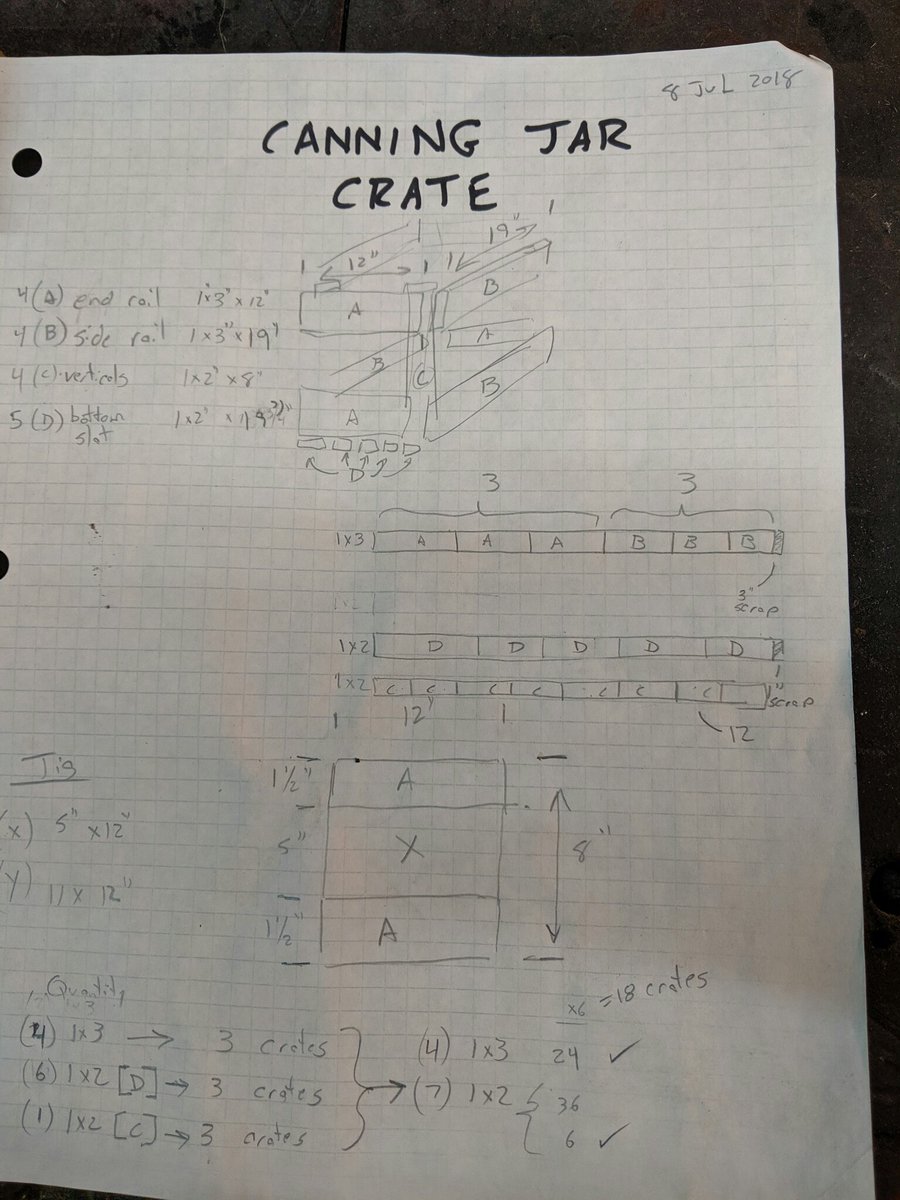 8 JUL 2018
CANNING JAR
CRATE
19"
12"
4 (A) end rail 1x3" x 12"
4 (B) side rail 1x3" x 19"
4 (C) verticals 1x2" x 8"
5 (D) bottom 1x2" x
slat
A
B
D
A
B
C
B
A
D
3 3
1x3 A A A B B B
3"
scrap
1x2
1x2 D D D D D
1x2 C C C C C C C
1"
scrap
12" 12
Jig
(X) 5" x 12"
(Y) 11 x 12"
1 1/2" A
5" X 8"
1 1/2" A
Quantity
x6 = 18 crates
(4) 1x3 → 3 crates (4) 1x3 24 ✓
(6) 1x2 [D] → 3 crates → (7) 1x2 36
(1) 1x2 [C] → 3 crates 6 ✓